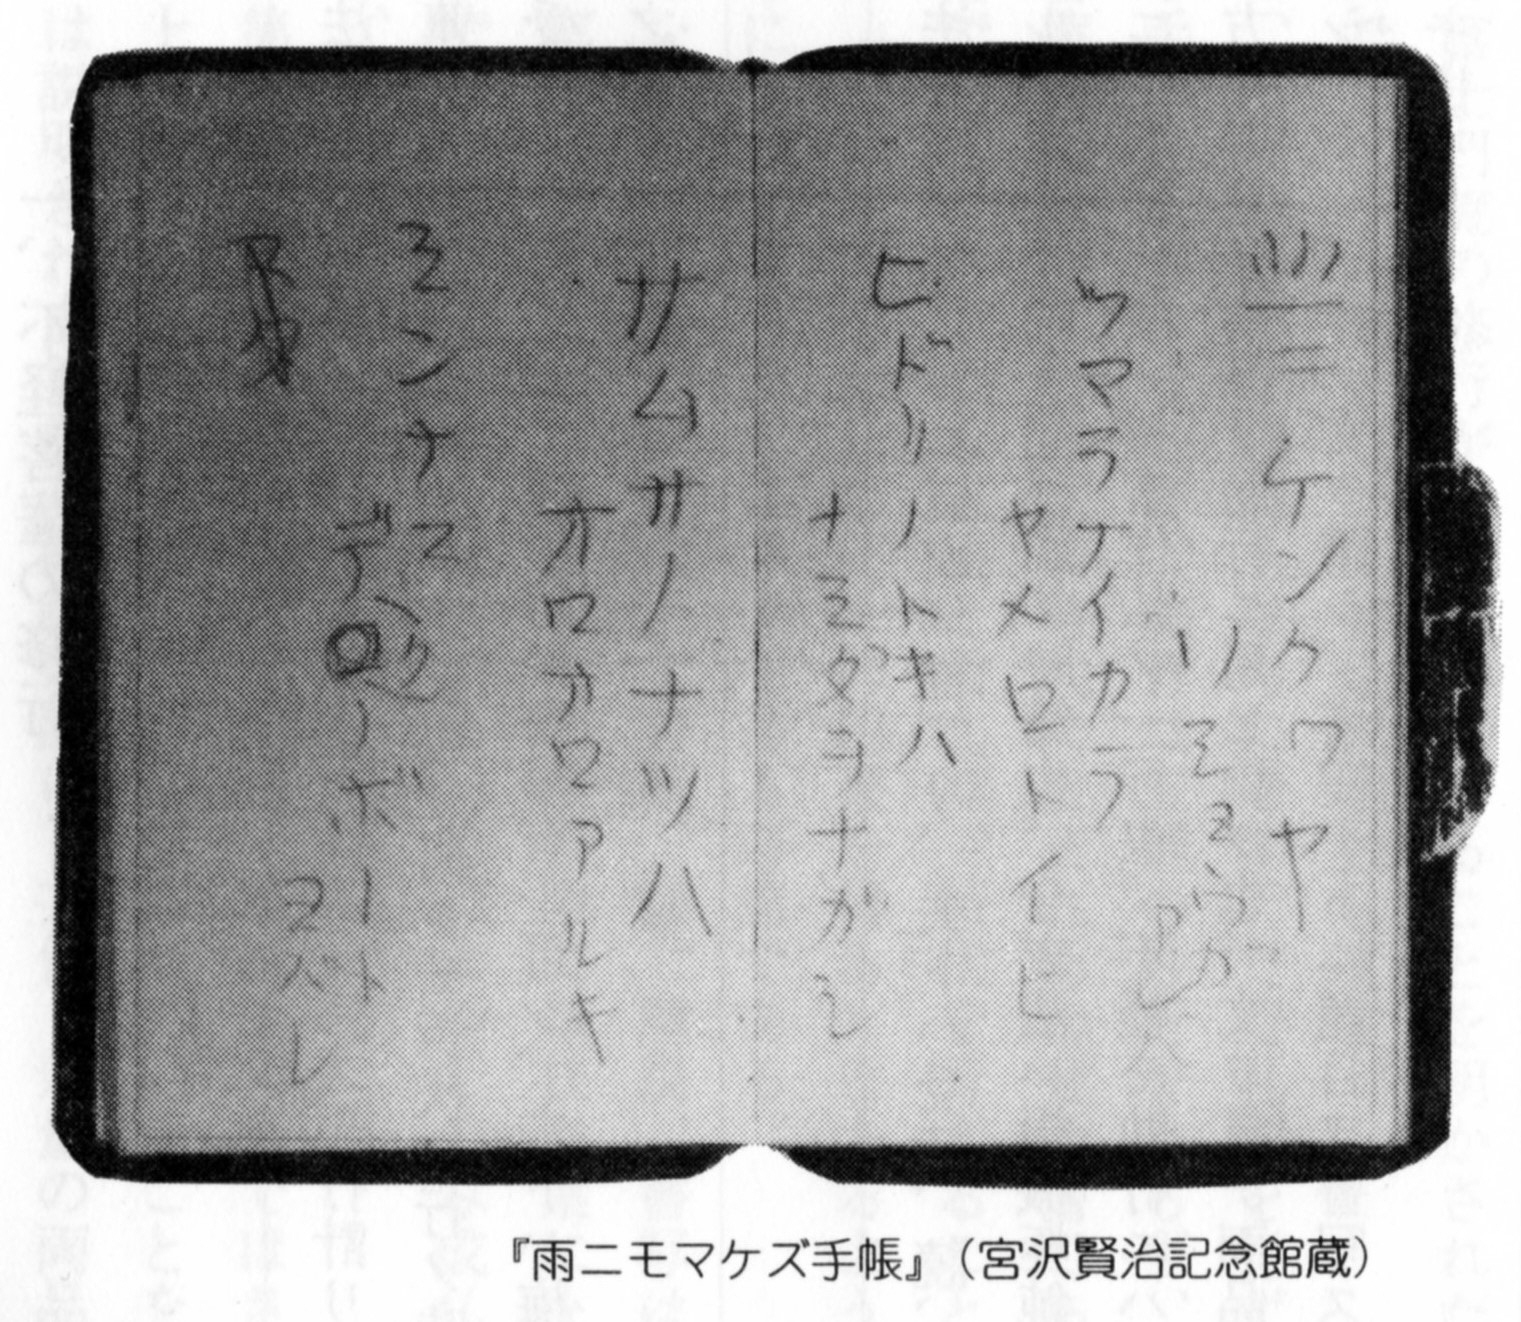 北ニケンクヮヤ
ソショウガ
アレバ
ツマラナイカラ
ヤメロトイヒ
ヒドリノトキハ
ナミダヲナガシ
サムサノナツハ
オロオロアルキ
ミンナニ
デクノボート
ヨバレ
『雨ニモマケズ手帳』（宮沢賢治記念館蔵）